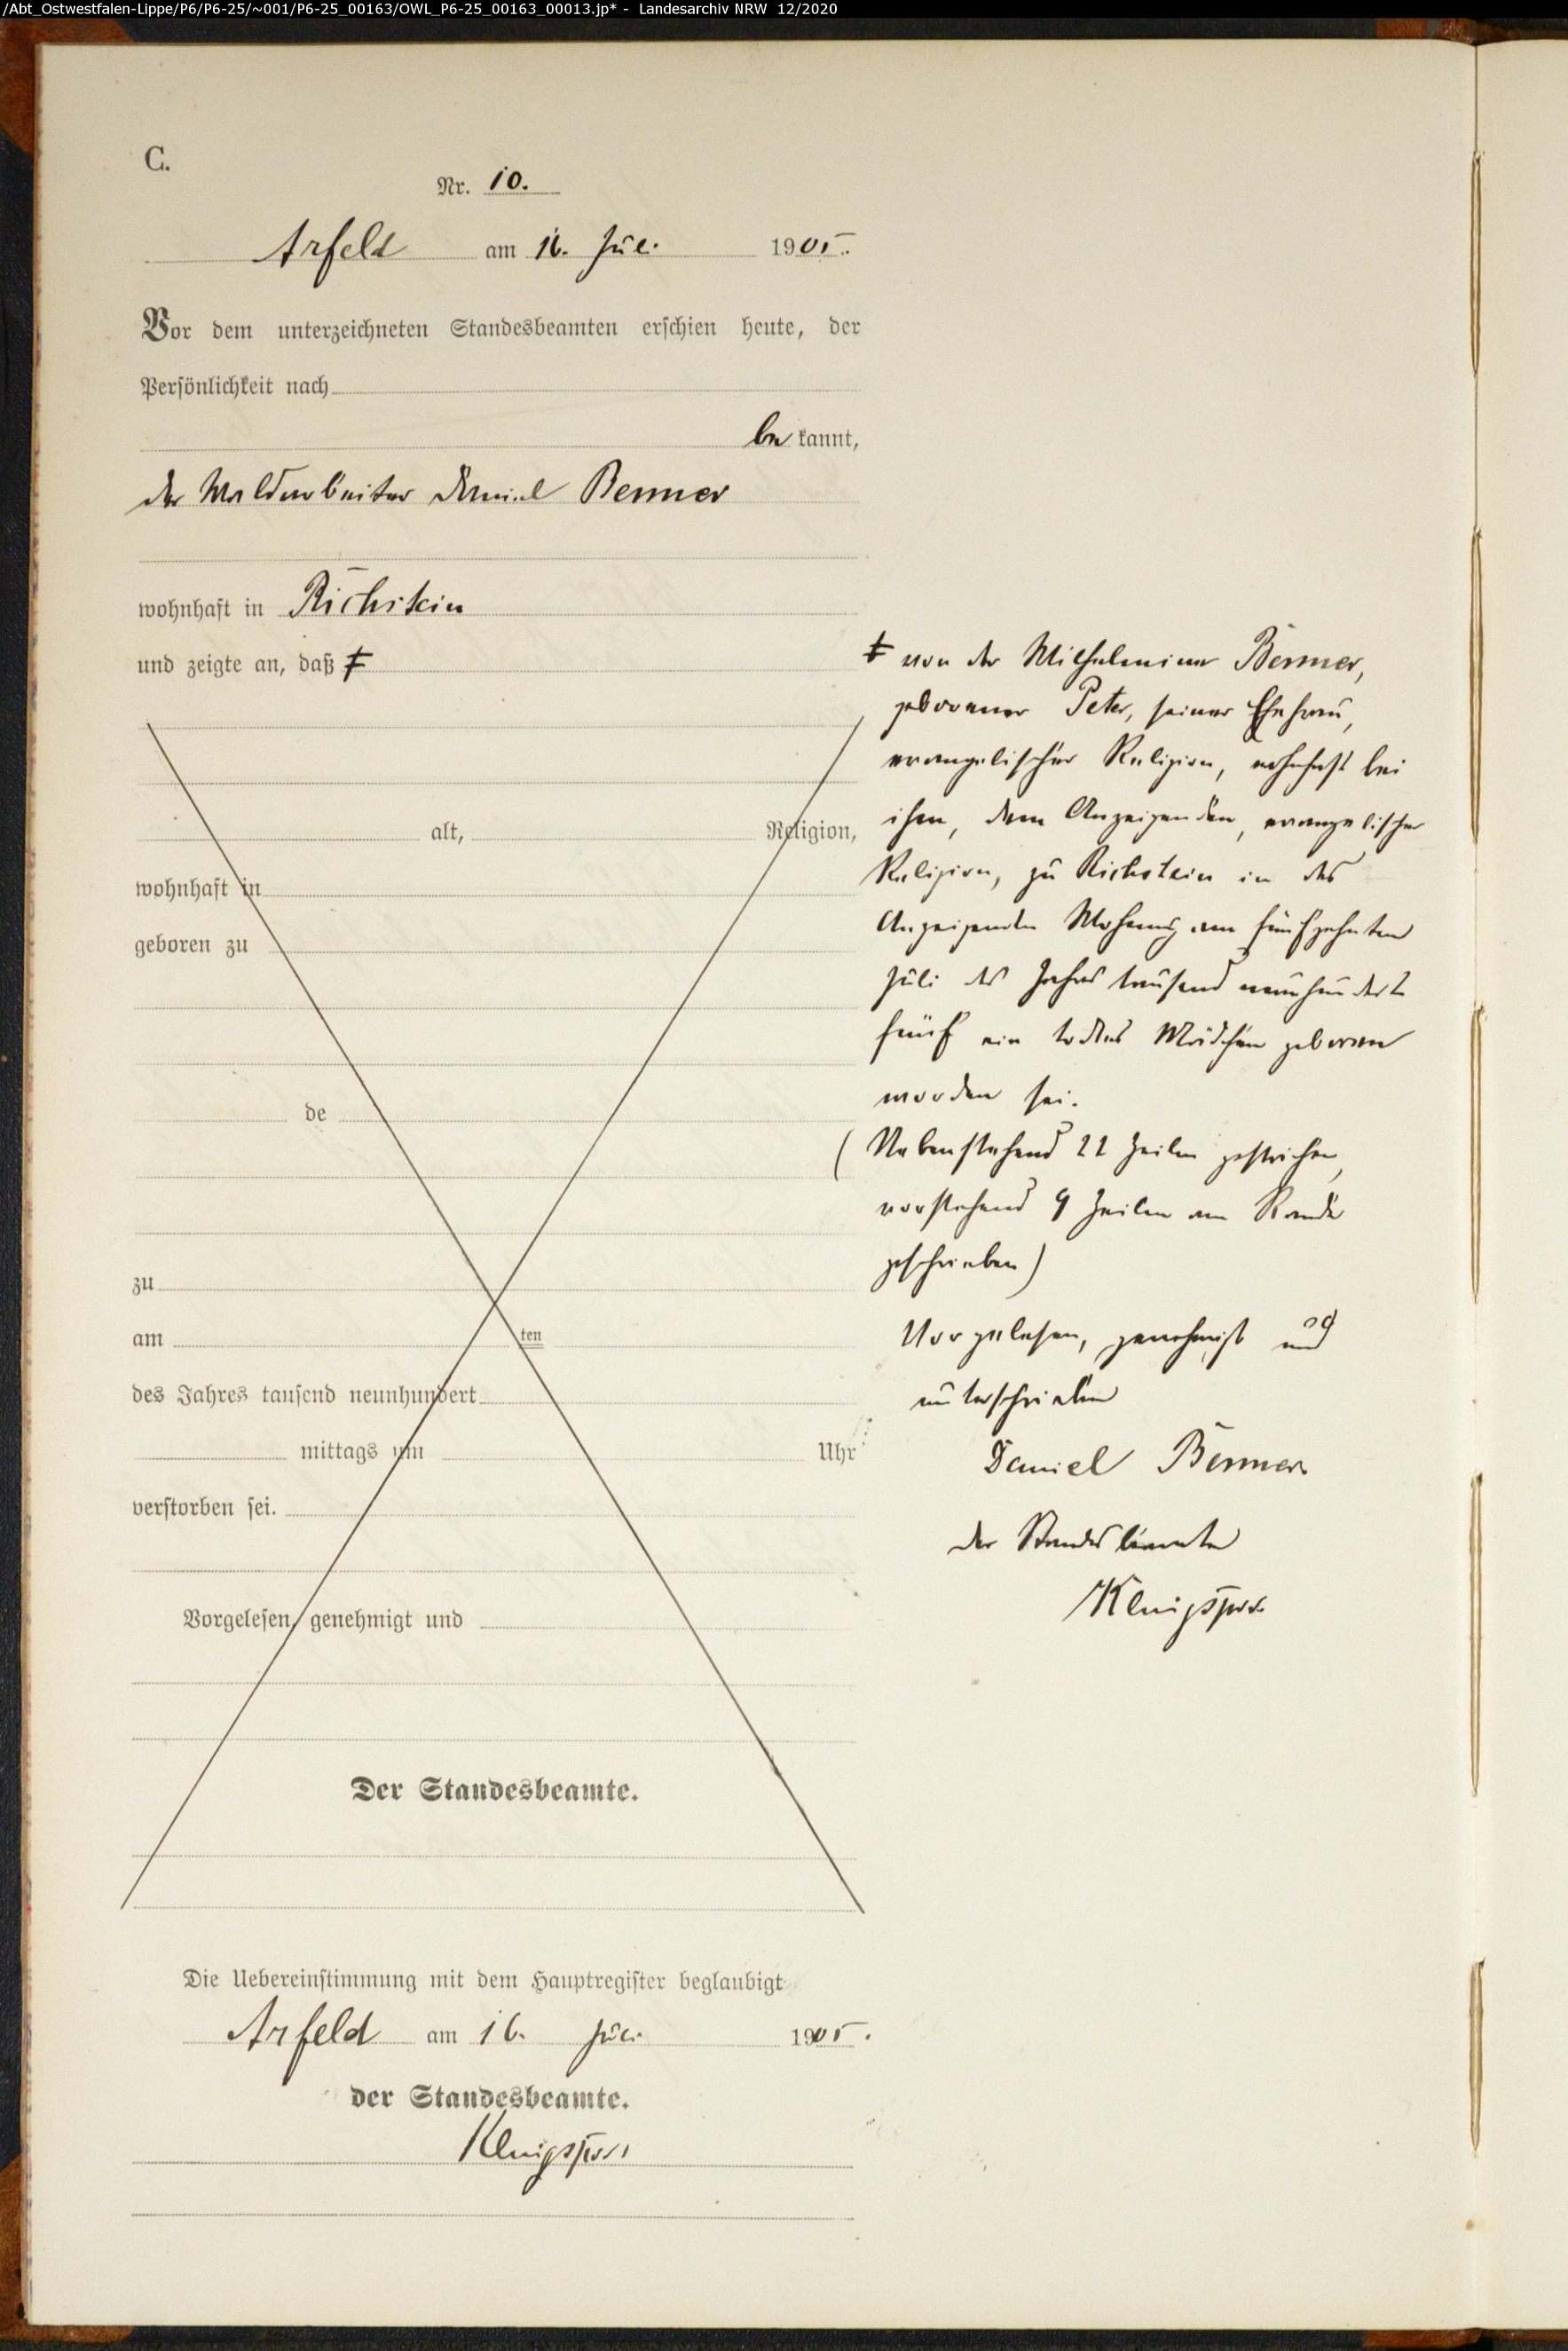 /Abt_Ostwestfalen-Lippe/P6/P6-25/~001/P6-25_00163/OWL_P6-25_00163_00013.jp* - Landesarchiv NRW 12/2020
C.
Nr. 10.
Arfeld am 16. Juli 1905.
Vor dem unterzeichneten Standesbeamten erschien heute, der
Persönlichkeit nach
be kannt,
der Waldarbeiter Daniel Benner
wohnhaft in Richstein
und zeigte an, daß ‡
alt, Religion,
wohnhaft in
geboren zu
de
zu
am ten
des Jahres tausend neunhundert
mittags um Uhr
verstorben sei.
Vorgelesen, genehmigt und
Der Standesbeamte.
‡ von der Wilhelmine Benner,
geborener Peter, seiner Ehefrau,
evangelischer Religion, wohnhaft bei
ihm, dem Anzeigenden, evangelischer
Religion, zu Richstein in des
Anzeigenden Wohnung am fünfzehnten
Juli des Jahres tausend neunhundert
fünf ein todtes Mädchen geboren
worden sei.
(Nebenstehend 22 Zeilen gestrichen,
vorstehend 9 Zeilen am Rande
geschrieben)
Vorgelesen, genehmigt und
unterschrieben
Daniel Benner
der Standesbeamte
Die Uebereinstimmung mit dem Hauptregister beglaubigt
Arfeld am 16. Juli 1905.
der Standesbeamte.